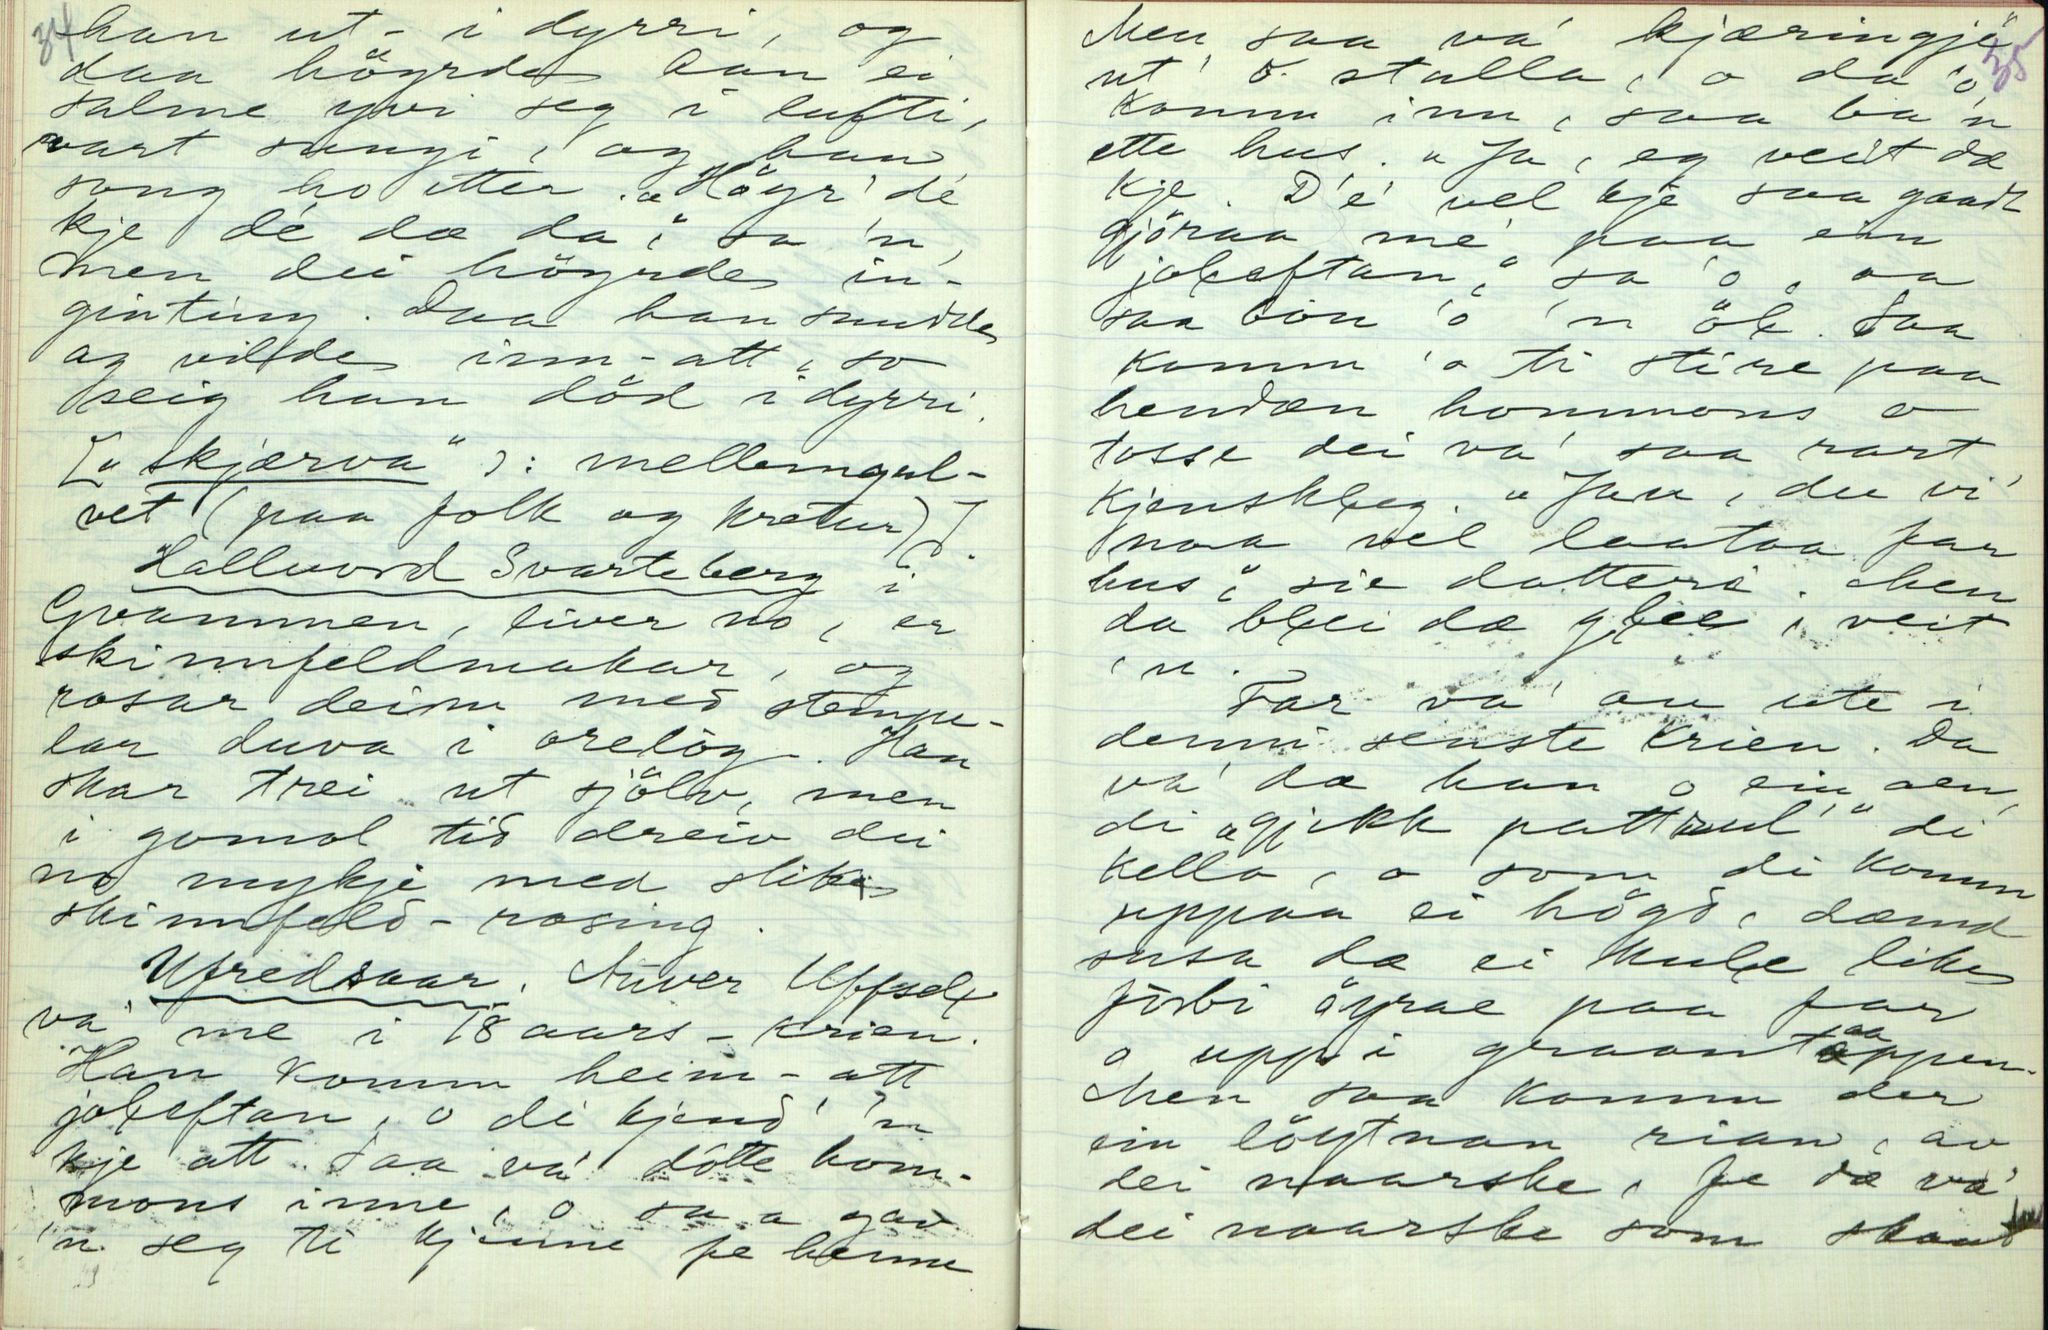 34
han ut - i dyrri, og
daa höyrde han ei
salme yvi seg i lufti,
vart sungi, og han
song ho etter. "Höyr' dé
kje dé dæ da", sa 'n,
men dei höyrde in-
ginting. Daa han snudde
og vilde inn-att, so
seig han död i dyrri.
["skjærva" ɔ: mellemgul-
vet (paa folk og kretur)].
Hallvord Svarteberg i
Gvammen, liver no, er
skinnfeldmakar, og
rosar deim med stempu-
lar duva i orelög. Han
skar trei ut sjölv, men
i gomol tid dreiv dei
no mykje med slike
skinnfeld-rosing.
Ufredsaar. Auver Uffsel
va' me i 18 aars-krien.
Han komm heim-att
joleftan, o di kjend' 'n
kje att. Saa va' dotte hom-
mons inne, o saa gav
'n seg ti kjenne fe henne
35
Men saa va' kjæringje
ut' o stalla, o da 'o
komm inn, saa ba 'n
ette hus. "Ja, eg veit dæ
kje. D'e' vel kje saa gaadt
gjöraa me' paa ein
joleftan," sa 'o, aa
saa bon 'o 'n öl. Saa
komm 'o ti stire paa
hendæn hommons o
tosse dei va' saa rart
kjenskleg. "Jau, du vi'
naa vel laataa far
hus," sie dotteri. Men
da blei dæ glee, veit
'n.
Far va' au ute i
denni senste krien. Da
va' dæ han o ein aen,
di "gjekk pattrul'" di
kella, o som di komm
uppaa ei högd, dæmd
susa dæ ei kule like
forbi öyrae paa far
o upp i graantaappen.
Men saa komm der
ein löytnan rian, av
dei naarske, fe dæ va'
dei naarske som skaut